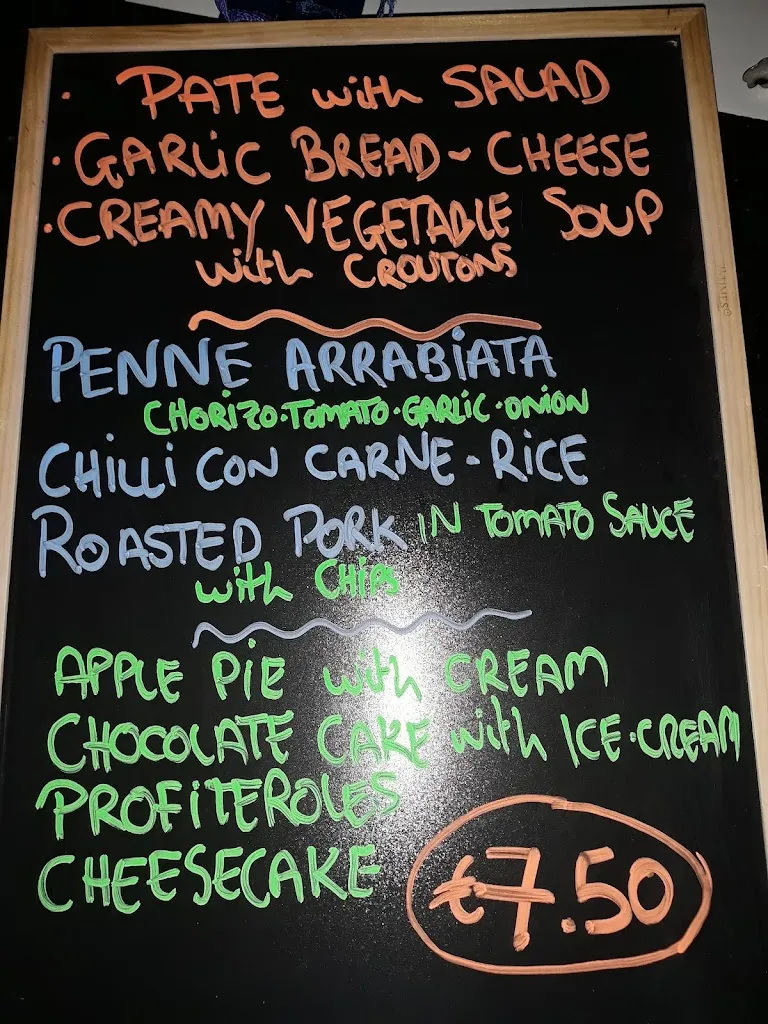 · PATE with SALAD
· GARLIC BREAD - CHEESE
· CREAMY VEGETABLE SOUP
with CROUTONS
PENNE ARRABIATA
CHORIZO · TOMATO · GARLIC · ONION
CHILLI CON CARNE - RICE
ROASTED PORK IN TOMATO SAUCE
with CHIPS
APPLE PIE with CREAM
CHOCOLATE CAKE with ICE·CREAM
PROFITEROLES
CHEESECAKE
€7.50